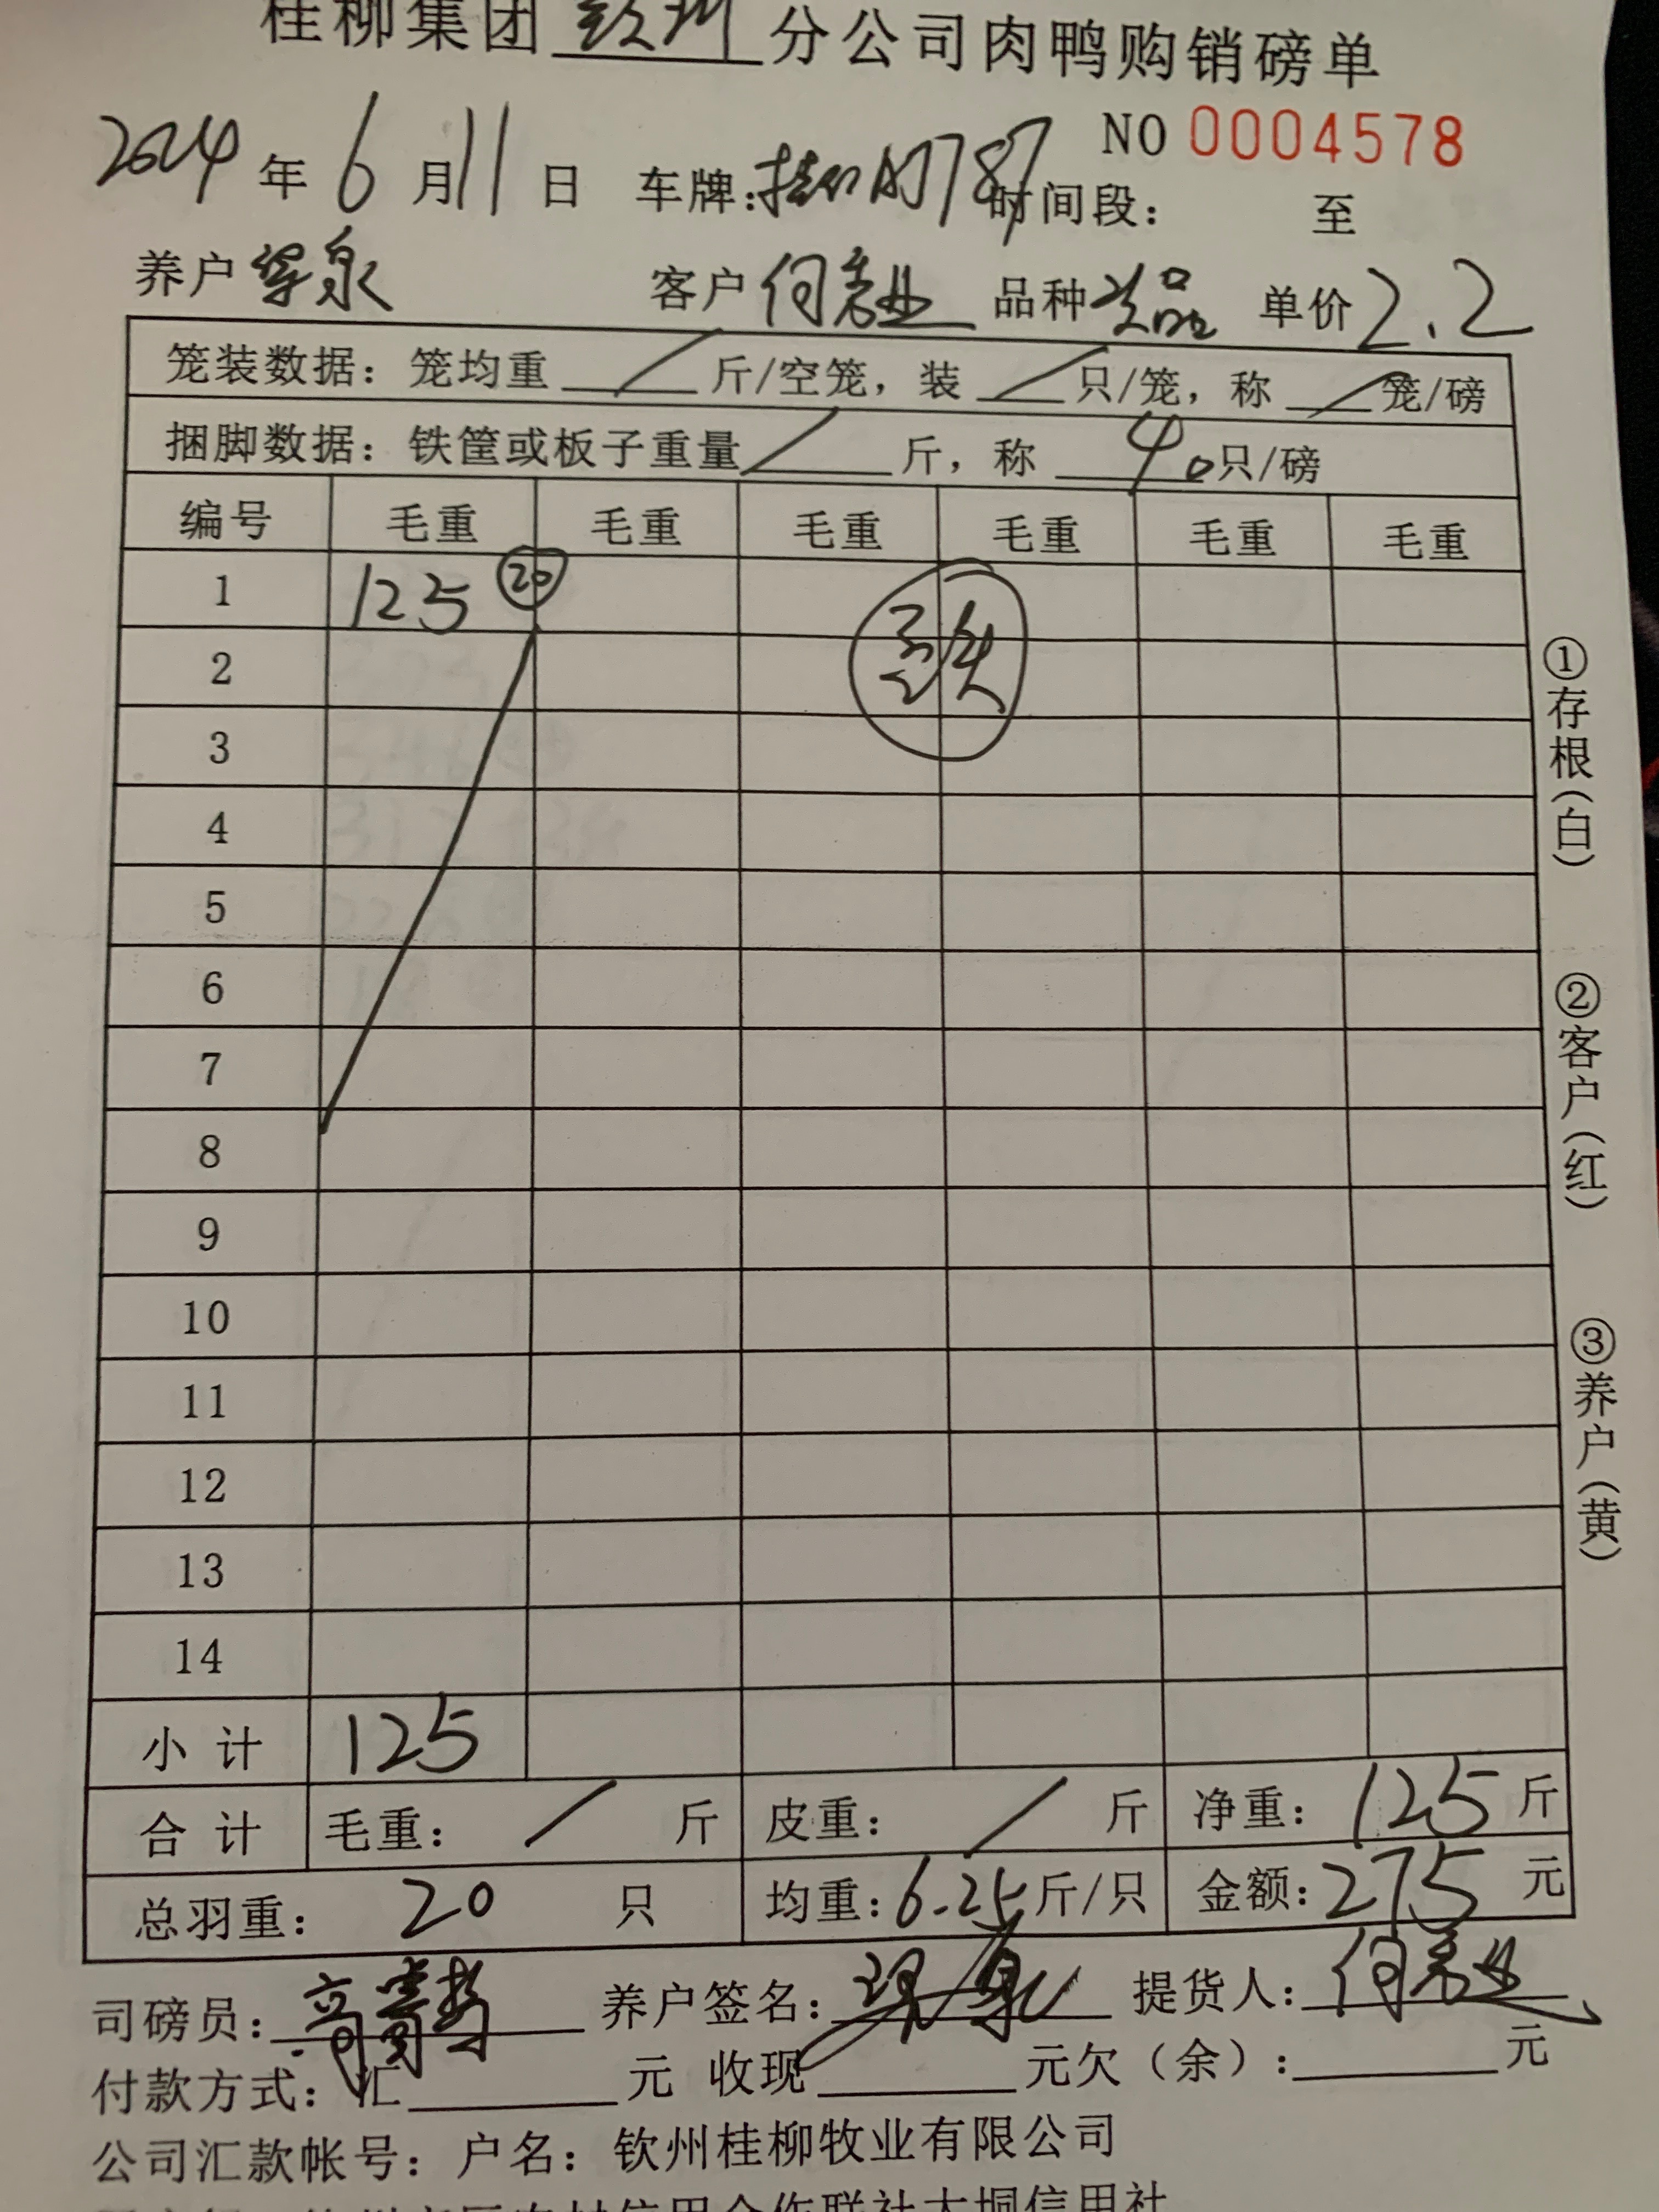 桂柳集团钦州分公司肉鸭购销磅单
NO 0004578
2024年6月11日 车牌: 787 时间段: 至
养户 泉 客户 何 业 品种 品 单价 2.2
笼装数据: 笼均重 / 斤/空笼, 装 / 只/笼, 称 / 笼/磅
捆脚数据: 铁筐或板子重量 / 斤, 称 40 只/磅
编号 毛重 毛重 毛重 毛重 毛重 毛重
1 125 20
2
3
4
5
6
7
8
9
10
11
12
13
14
小计 125
合计 毛重: / 斤 皮重: / 斤 净重: 125 斤
总羽重: 20 只 均重: 6.25 斤/只 金额: 275 元
①存根(白)
②客户(红)
③养户(黄)
司磅员: 养户签名: 提货人: 何 业
付款方式: 汇 元 收现 元欠(余): 元
公司汇款帐号: 户名: 钦州桂柳牧业有限公司